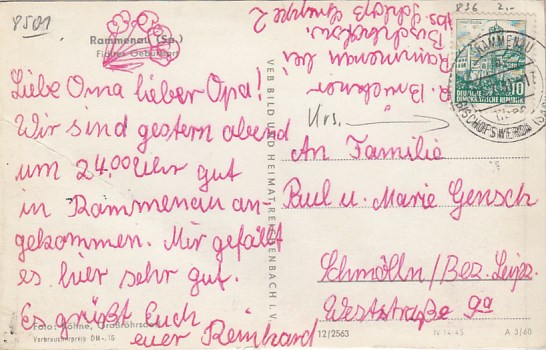 8501
Rammenau (Sa.)
Liebe Oma lieber Opa!
Wir sind gestern abend
um 24,00 Uhr gut
in Rammenau an-
gekommen. Mir gefällt
es hier sehr gut.
Es grüßt Euch
euer Reinhard
Verbraucherpreis DM -,15
VEB BILD UND HEIMAT REICHENBACH I. V.
12/2563
836 2,-
R. Bruckner
Rammenau bei
Bischofsw.
Gruppe 2
DEUTSCHE
DEMOKRATISCHE REPUBLIK
10
RAMMENAU
BISCHOFSWERDA
Krs.
An Familie
Paul u. Marie Gensch
Schmölln/Bez. Leipz.
Weststraße 9a
A 3/60